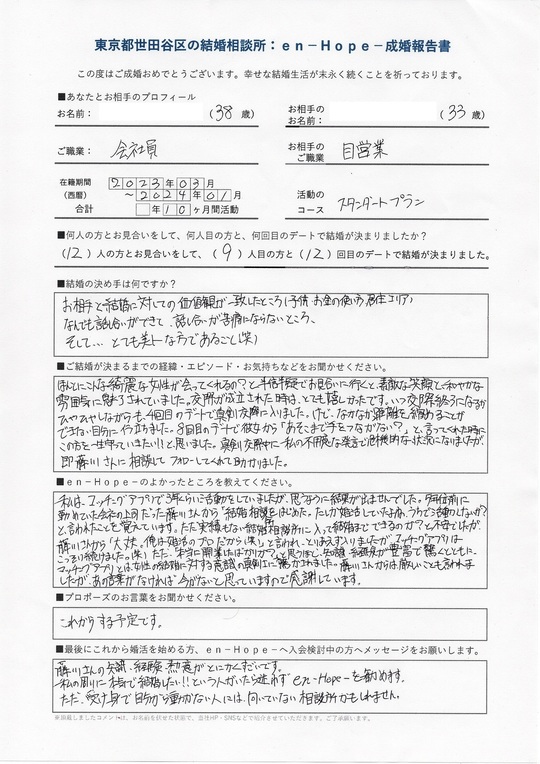 東京都世田谷区の結婚相談所：en－Hope－成婚報告書
この度はご成婚おめでとうございます。幸せな結婚生活が末永く続くことを祈っております。
■あなたとお相手のプロフィール
お名前： （38歳） お相手のお名前： （33歳）
ご職業： 会社員 お相手のご職業 自営業
在籍期間（西暦） 2023年03月～2024年01月
合計 年10ヶ月間活動
活動のコース スタンダートプラン
■何人の方とお見合いをして、何人目の方と、何回目のデートで結婚が決まりましたか？
（12）人の方とお見合いをして、（9）人目の方と（12）回目のデートで結婚が決まりました。
■結婚の決め手は何ですか？
お相手と結婚に対しての価値観が一致したところ（子供・お金の使い方・居住エリア）
なんでも話し合いができて、話し合いが苦痛にならないところ、
そして…とても美人な方であること（笑）
■ご結婚が決まるまでの経緯・エピソード・お気持ちなどをお聞かせください。
ほんとにこんな綺麗な女性が会ってくれるの？と半信半疑でお見合いに行くと、素敵な笑顔と和やかな
雰囲気に魅了されていました。交際が成立された時は、とても嬉しかったです。いつ交際終了になるか
ムやムやしながらも、4回目のデートで真剣交際に入りました。けど、なかなか距離を縮めることが
できない自分に、8回目のデートで彼女から「あそこまで手をつながない？」と言ってくれた時に
この方を一生守っていきたい！！と思いました。真剣交際中に私の不用意な発言で危機的な状況になりましたが、
即藤川さんに相談してフォローしてくれて助かりました。
■en－Hope－のよかったところを教えてください。
私は、マッチングアプリで3年くらい活動をしていましたが、思うように結果が出ませんでした。
勤めていた会社の上司だった藤川さんから「結婚相談をはじめた。たしか婚活していたよね、うちで活動しない？」
と言われたことを覚えています。ただ実績もない結婚相談所に入って結婚までできるのか？と不安でしたが、
藤川さんから「大丈夫。俺は婚活のプロだから（笑）」と言われ、とりあえず入いましたが、マッチングアプリは
こっそり続けました。（笑）ただ、本当に開業したばかりか？と思うほど、知識・経験が豊富で驚くとともに、
マッチングアプリとは女性の結婚に対する意識の真剣さに驚かされました。藤川さんからは厳しいことも言われま
したが、あの言葉がなければ今がないと思っていますので感謝しています。
■プロポーズのお言葉をお聞かせください。
これからする予定です。
■最後にこれから婚活を始める方、en－Hope－へ入会検討中の方へメッセージをお願いします。
藤川さんの知識・経験・熱意がとにかくすごいです。
私の周りに本気で結婚したい！！という人がいたら迷わずen-Hope-を勧めます。
ただ、受け身で自分から動かない人には、向いていない相談所かもしれません。
※頂戴しましたコメントは、お名前を伏せた状態で、当社HP・SNSなどで紹介させていただきます。ご了承願います。